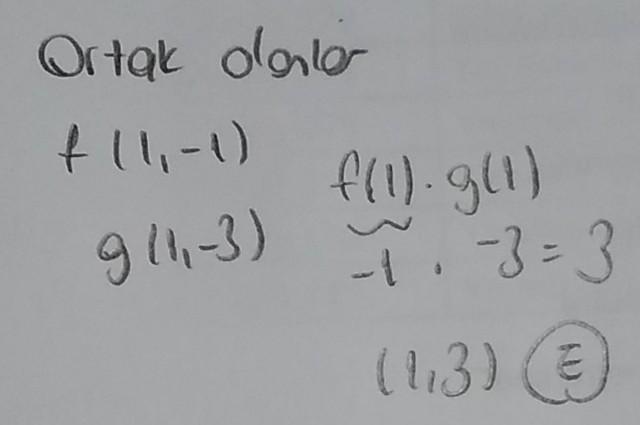 Ortak olanlar
f(1,-1)
g(1,-3)
f(1).g(1)
-1 . -3 = 3
(1,3) E